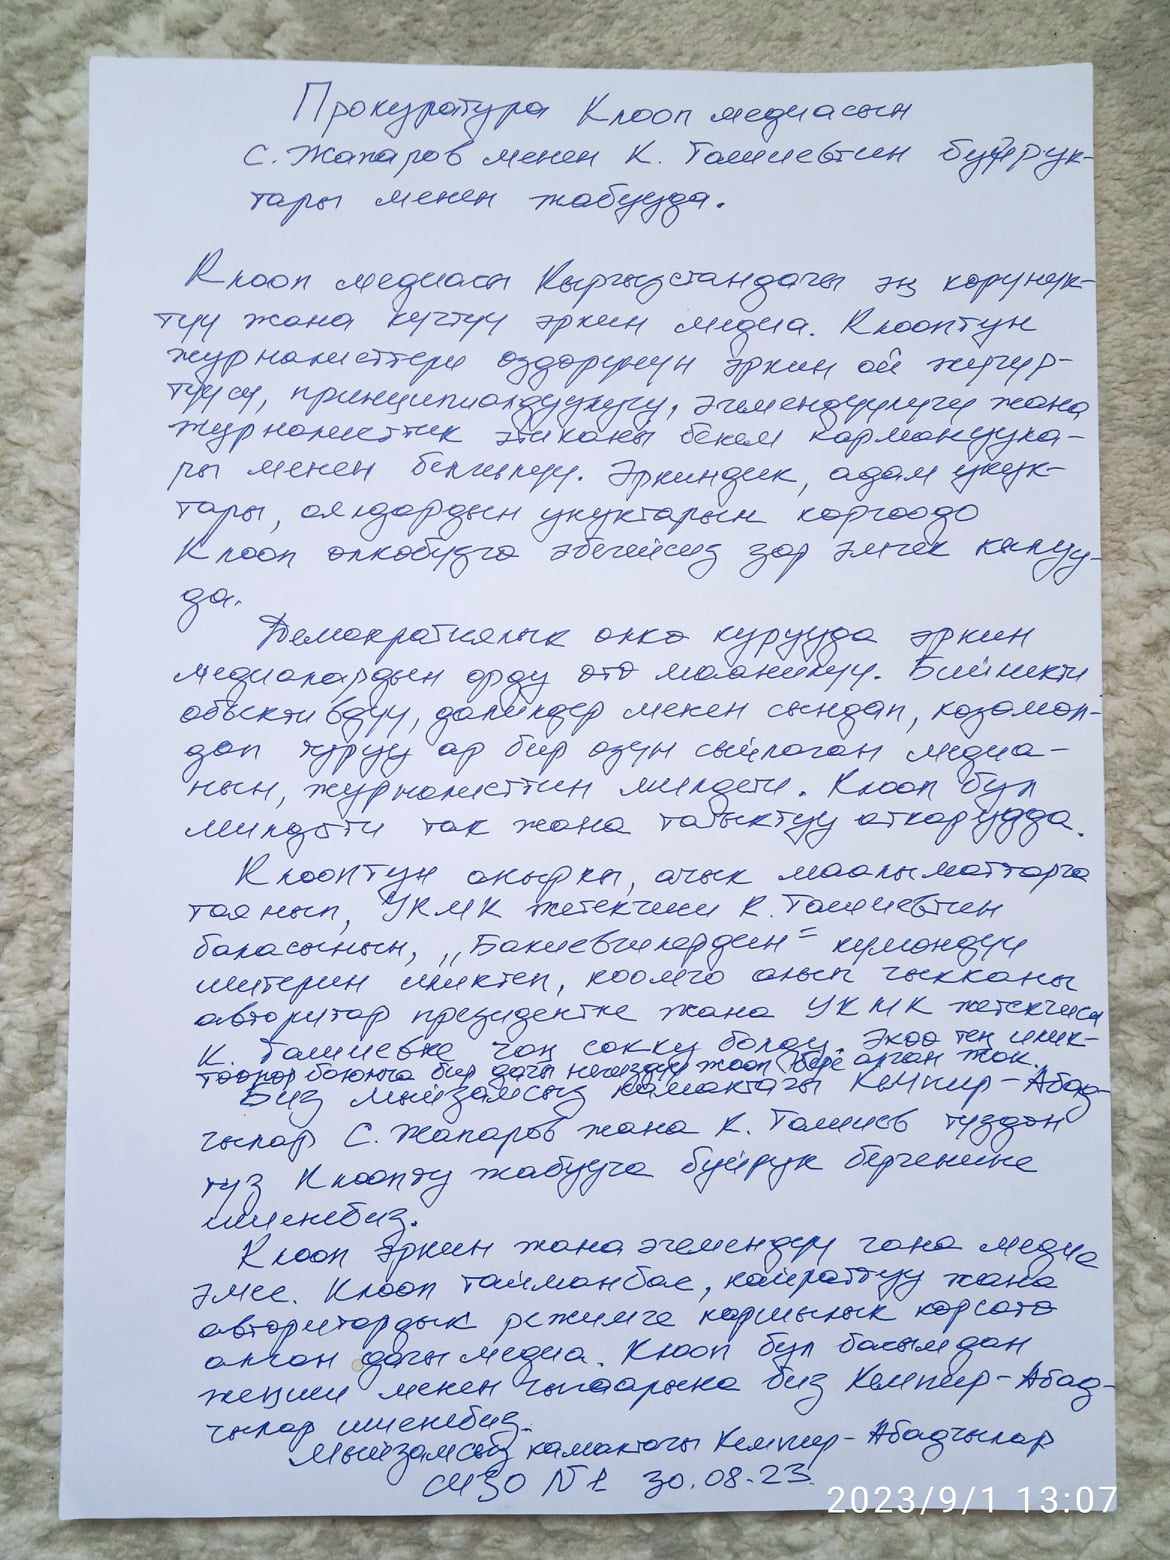 Прокуратура Клооп медиасын
С. Жапаров менен К. Ташиевтин буйрук-
тары менен жабууда.
Клооп медиасы Кыргызстандагы эң корунук-
туу жана кучтуу эркин медиа. Клооптун
журналисттери оздорунун эркин ой жугур-
туусу, принципиалдуулугу, эгемендуулугу жана
журналисттик этиканы бекем кармануула-
ры менен белгилуу. Эркиндик, адам укук-
тары, аялдардын укуктарын коргоодо
Клооп олкобузго эбегейсиз зор эмгек кылуу-
да.
Демократиялык олко курууда эркин
медиалардын орду ото маанилуу. Бийликти
объективдуу, далилдер менен сындап, козомол-
доп туруу ар бир озун сыйлаган медиа-
нын, журналисттин милдети. Клооп бул
милдетти так жана татыктуу аткарууда.
Клооптун акыркы, ачык маалыматтарга
таянып, УКМК жетекчиси К. Ташиевтин
баласынын, „Бакиевчилердин" кумондуу
иштерин иликтеп, коомго алып чыкканы
авторитар президентке жана УКМК жетекчиси
К. Ташиевке чоң сокку болду. Экоо тең илик-
тоолор боюнча бир дагы негиздуу жооп бере алган жок.
Биз мыйзамсыз камактагы Кемпир-Абад-
чылар С. Жапаров жана К. Ташиев туздон
туз Клоопту жабууга буйрук бергенине
ишенебиз.
Клооп эркин жана эгемендуу гана медиа
эмес. Клооп тайманбас, кайраттуу жана
авторитардык режимге каршылык корсото
алган дагы медиа. Клооп бул басымдан
жеңиш менен чыгаарына биз Кемпир-Абад-
чылар ишенебиз.
Мыйзамсыз камактагы Кемпир-Абадчылар
СИЗО №1 30.08.23.
2023/9/1 13:07